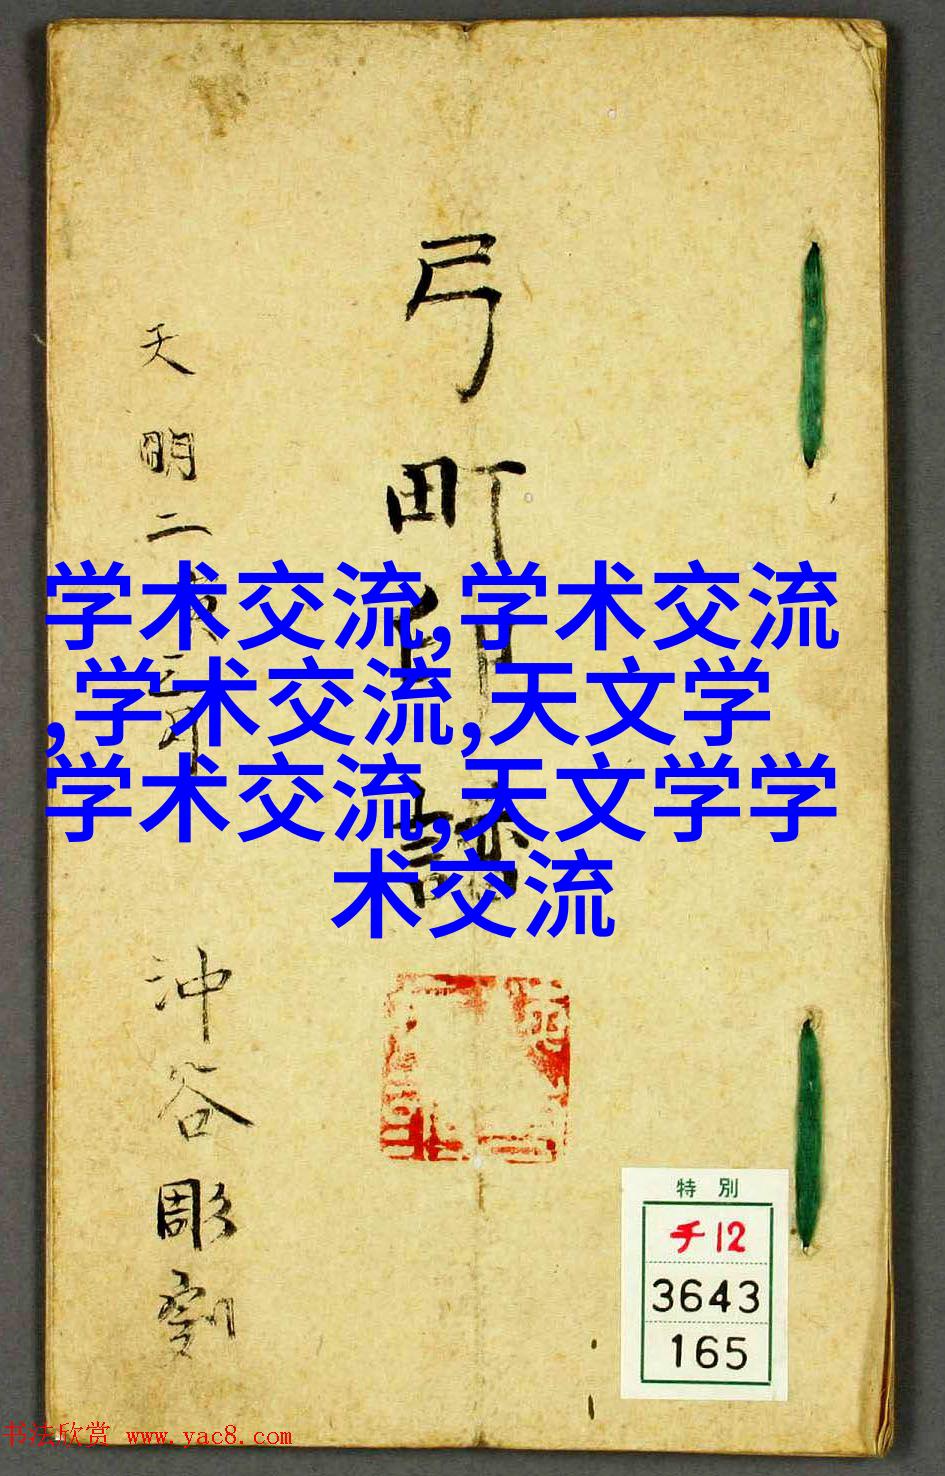 弓町印譜
天明二寅三月
沖谷彫刻
学术交流,学术交流
,学术交流,天文学
学术交流,天文学学
术交流
特別
チ12
3643
165
书法欣赏 www.yac8.com